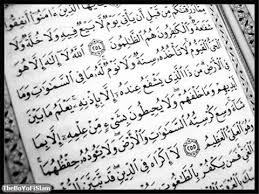 رَزَقْنَٰكُم مِّن قَبْلِ أَن يَأْتِىَ يَوْمٌ لَّا بَيْعٌ فِيهِ وَلَا خُلَّةٌ وَلَا
شَفَٰعَةٌ وَٱلْكَٰفِرُونَ هُمُ ٱلظَّٰلِمُونَ ٢٥٤ ٱللَّهُ لَآ إِلَٰهَ إِلَّا هُوَ
ٱلْحَىُّ ٱلْقَيُّومُ لَا تَأْخُذُهُۥ سِنَةٌ وَلَا نَوْمٌ لَّهُۥ مَا فِى ٱلسَّمَٰوَٰتِ وَمَا
فِى ٱلْأَرْضِ مَن ذَا ٱلَّذِى يَشْفَعُ عِندَهُۥٓ إِلَّا بِإِذْنِهِۦ يَعْلَمُ مَا بَيْنَ
أَيْدِيهِمْ وَمَا خَلْفَهُمْ وَلَا يُحِيطُونَ بِشَىْءٍ مِّنْ عِلْمِهِۦٓ إِلَّا بِمَا
شَآءَ وَسِعَ كُرْسِيُّهُ ٱلسَّمَٰوَٰتِ وَٱلْأَرْضَ وَلَا يَـُٔودُهُۥ حِفْظُهُمَا
وَهُوَ ٱلْعَلِىُّ ٱلْعَظِيمُ ٢٥٥ لَآ إِكْرَاهَ فِى
فَمَن يَكْفُرْ
TheBoYoFiSlam